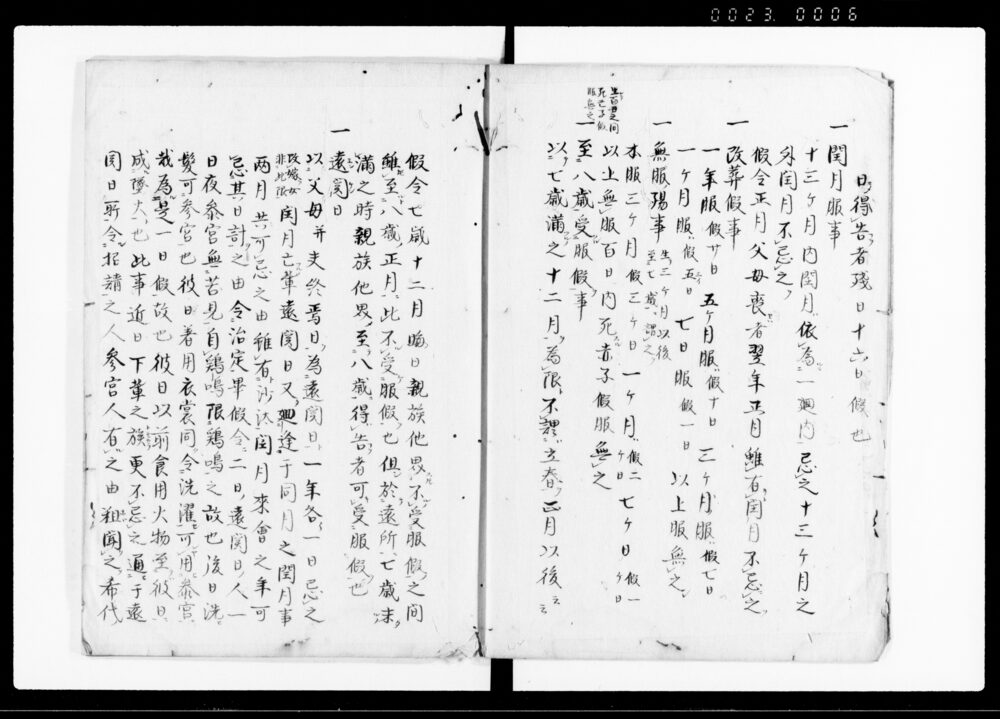 0023. 0006
日得告者残日十六日假也
一 閏月服事
十三ケ月内閏月依為一廻内忌之十三ケ月之
外閏月不忌之
假令正月父母喪者翌年正月雖有閏月不忌之
一 改葬假事
一年服假廿日 五ケ月服假十日 三ケ月服假七日
一ケ月服假五日 七日服假一日 以上服無之
一 無服殤事 生三ケ月以後至七歳謂之
本服三ケ月假三ケ日 一ケ月假二ケ日 七ケ日假一ケ日
以上無服百日内死赤子假服無之
生百日之間死亡子假服無之
一 至八歳受服假事
以七歳満之十二月為限不謂立春正月以後云云
假令七歳十二月晦日親族他界不受服假之間
雖至八歳正月此不受服假也但於遠所七歳未
満之時親族他界至八歳得告者可受服假也
一 遠閏日
以父母并夫終焉日為遠閏日一年各一日忌之
改嫁女非此限 閏月亡輩遠閏日又廻逢于同月之閏月事
両月共可忌之由雖有沙汰閏月来會之年可
忌其日計之由令治定畢假令二日遠閏日人一
日夜参宮無苦見自鶏鳴限鶏鳴之故也後日洗
髪可参宮也彼日着用衣裳同令洗濯可用参宮
哉為是一日假故也彼日以前食用火物至彼日
成墜火也此事近日下輩之族更不忌之通于遠
閏日所令招請之人参宮人有之由粗聞之希代